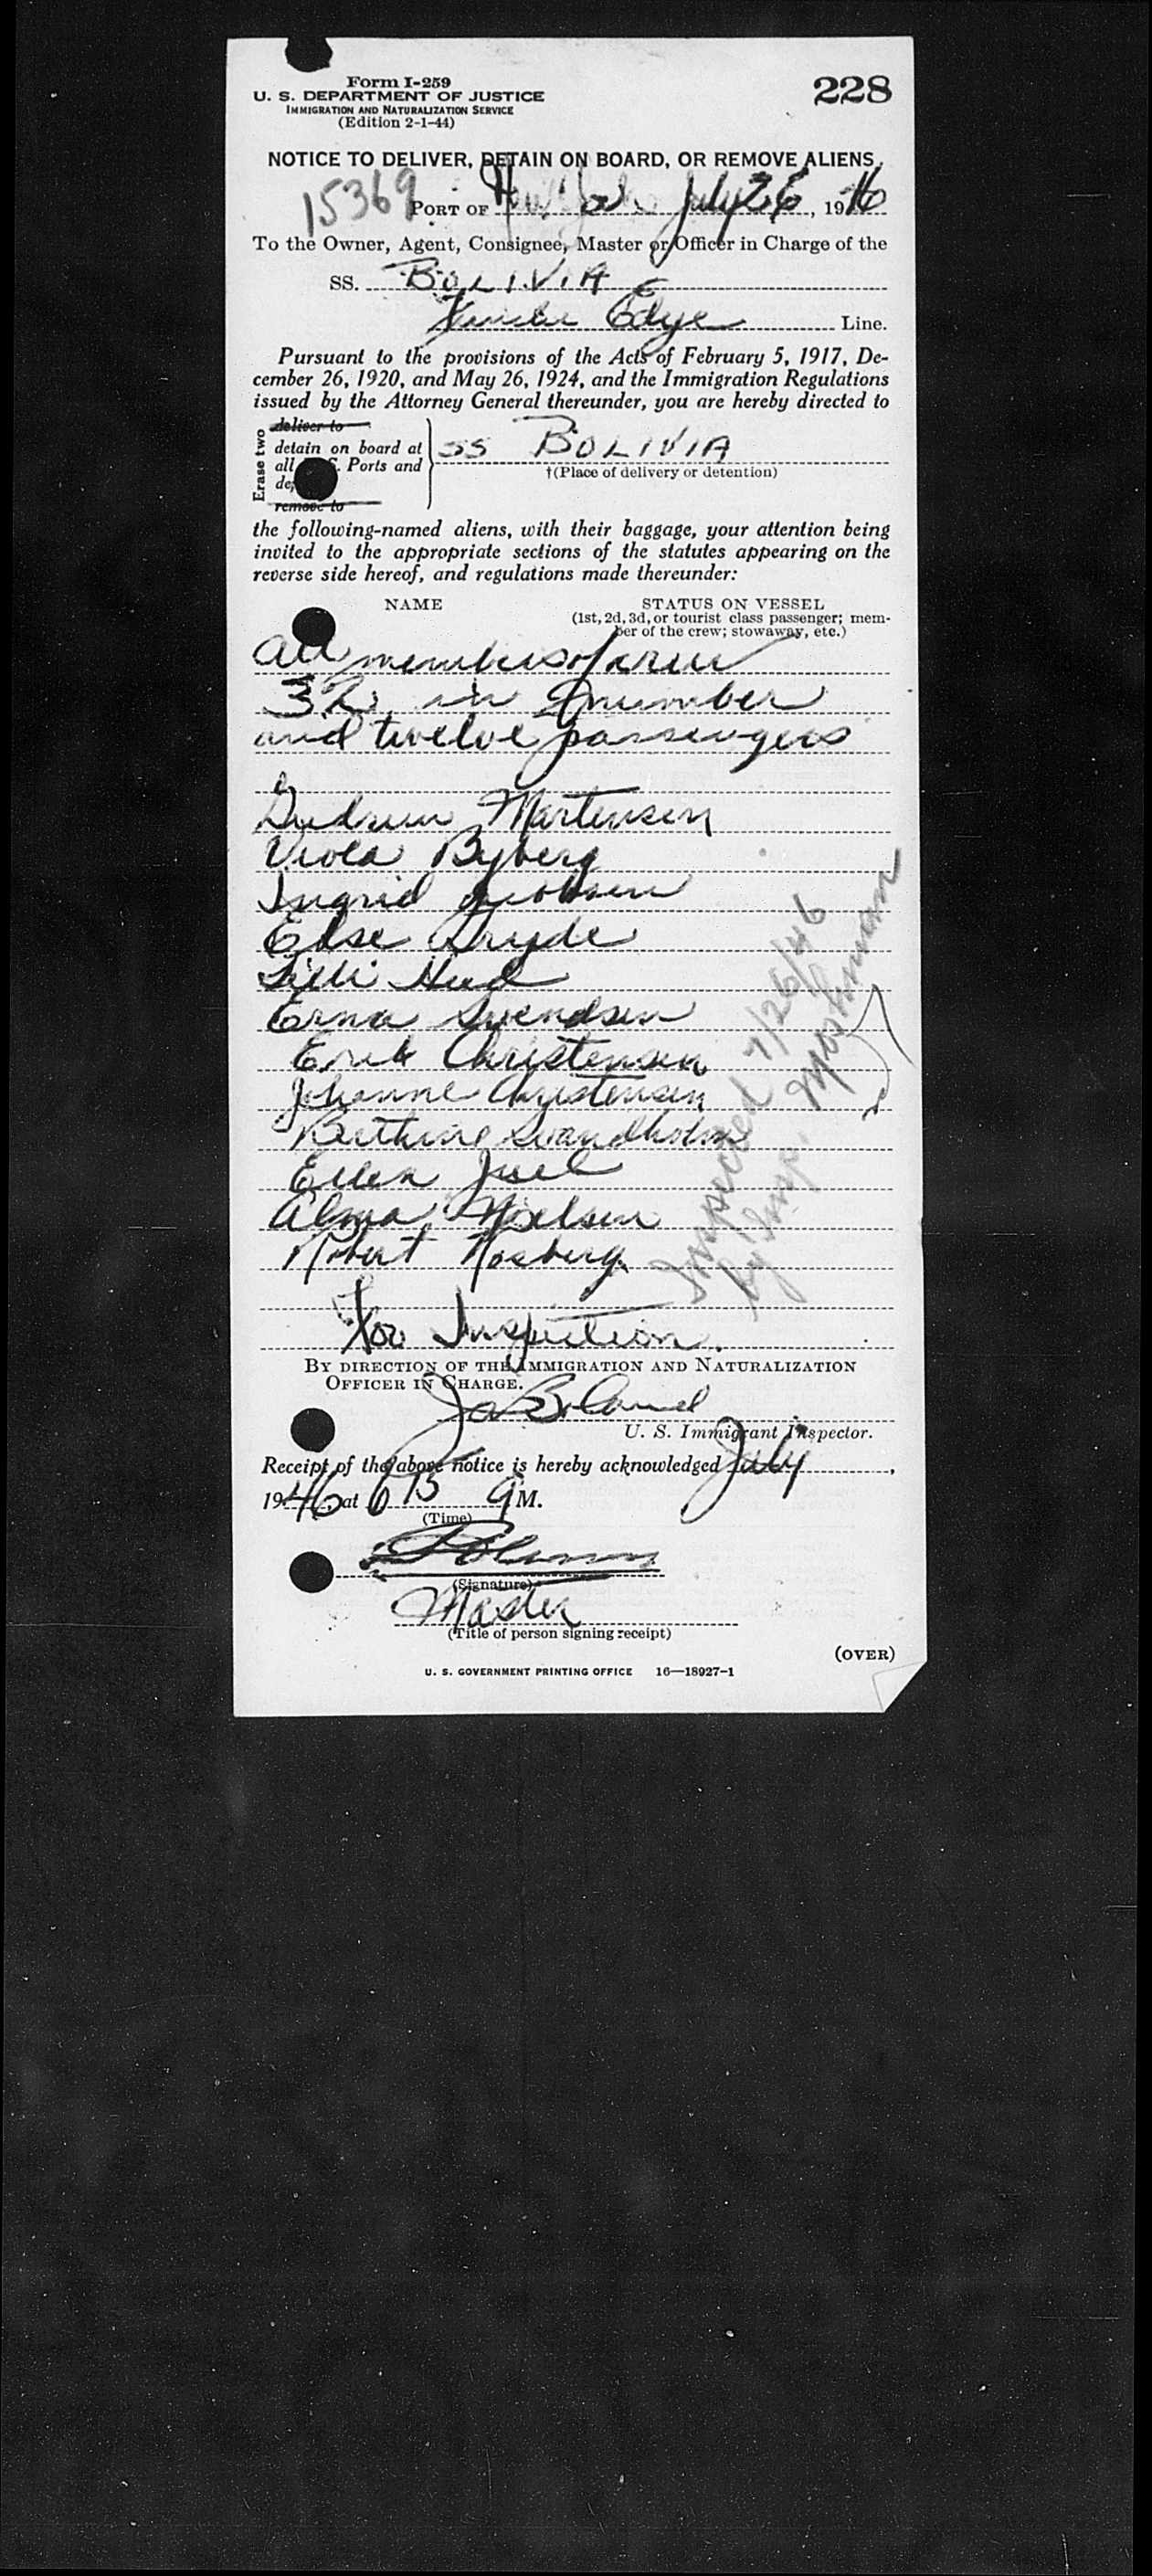 Form I-259
U. S. DEPARTMENT OF JUSTICE
IMMIGRATION AND NATURALIZATION SERVICE
(Edition 2-1-44)
228
NOTICE TO DELIVER, DETAIN ON BOARD, OR REMOVE ALIENS
15369
PORT OF New York July 26, 1946
To the Owner, Agent, Consignee, Master or Officer in Charge of the
SS. BOLIVIA
Edye Line.
Pursuant to the provisions of the Acts of February 5, 1917, De-
cember 26, 1920, and May 26, 1924, and the Immigration Regulations
issued by the Attorney General thereunder, you are hereby directed to
Erase two
deliver to
detain on board at
all Ports and
remove to
SS BOLIVIA
†(Place of delivery or detention)
the following-named aliens, with their baggage, your attention being
invited to the appropriate sections of the statutes appearing on the
reverse side hereof, and regulations made thereunder:
NAME
STATUS ON VESSEL
(1st, 2d, 3d, or tourist class passenger; mem-
ber of the crew; stowaway, etc.)
All members of crew
32 in number
and twelve passengers
Gudrun Martensen
Viola Byberg
Ingrid Jacobsen
Else Gryde
Lilli
Erna Svendsen
Erik Christensen
Johanne Christensen
Svandholm
Ellen Juel
Alma Nielsen
Robert Rosberg
For Inspection.
Inspected 7/26/46
by Insp. Moshman
BY DIRECTION OF THE IMMIGRATION AND NATURALIZATION
OFFICER IN CHARGE.
U. S. Immigrant Inspector.
Receipt of the above notice is hereby acknowledged July,
1946, at 6 15 M.
(Time)
(Signature)
Master
(Title of person signing receipt)
(OVER)
U. S. GOVERNMENT PRINTING OFFICE 16—18927-1